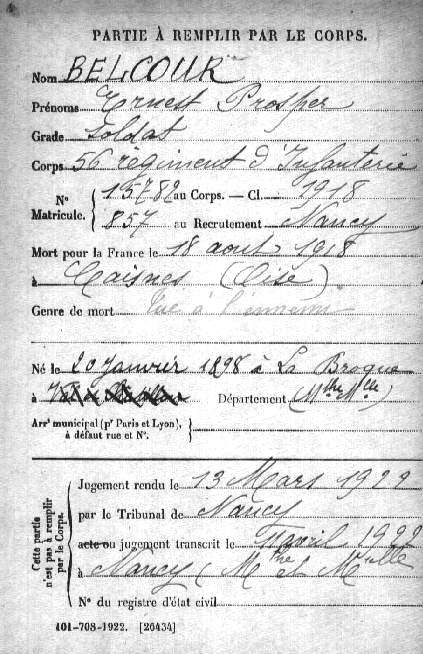 PARTIE À REMPLIR PAR LE CORPS.
Nom BELCOUR
Prénoms Ernest Prosper
Grade Soldat
Corps 56 régiment d'Infanterie
N° Matricule. { 15782 au Corps. — Cl. 1918
857 au Recrutement Nancy
Mort pour la France le 18 août 1918
à Caisnes (Oise)
Genre de mort Tué à l'ennemi
Né le 20 janvier 1898 à La Broque
à Département (Mthe Mlle)
Arr<sup>t</sup> municipal (p<sup>r</sup> Paris et Lyon), à défaut rue et N°. }
Cette partie n'est pas à remplir par le Corps. {
Jugement rendu le 13 Mars 1922
par le Tribunal de Nancy
acte ou jugement transcrit le avril 1922
à Nancy (Mthe et Mselle
N° du registre d'état civil
101-708-1922. [26434]